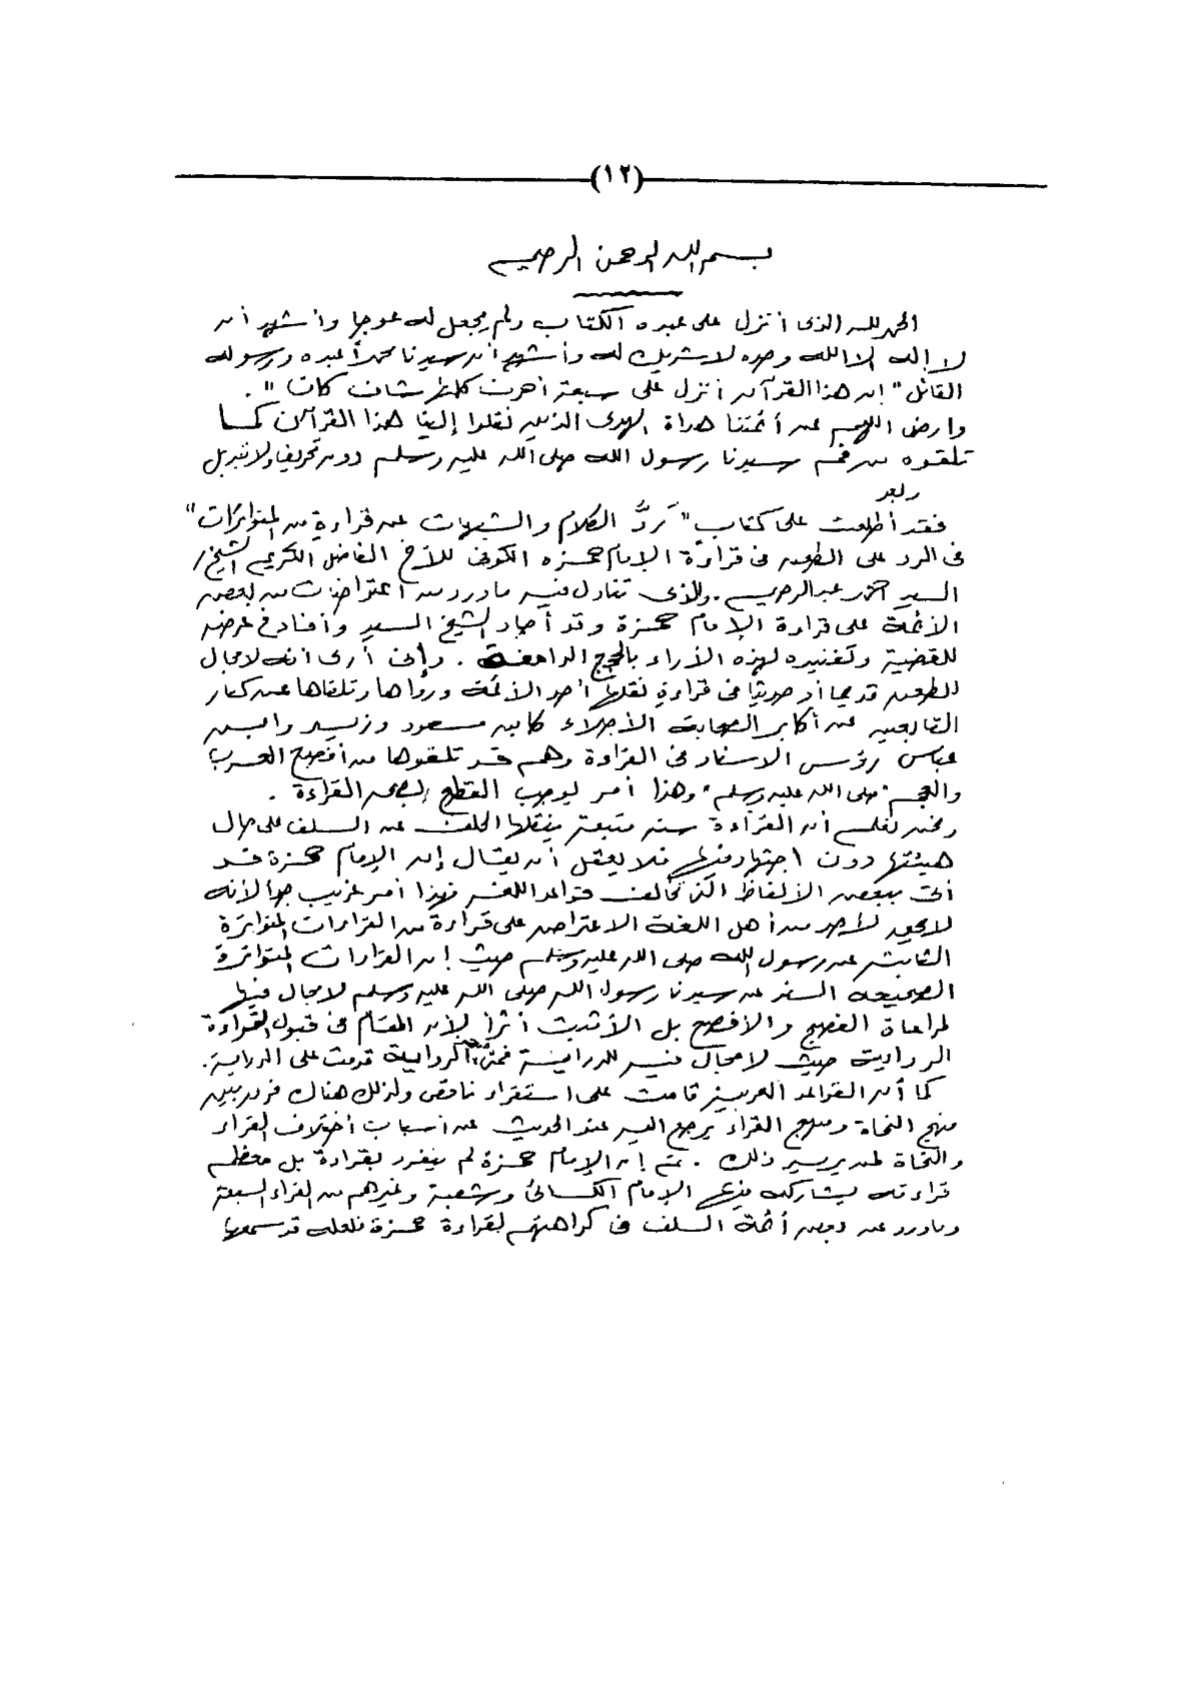 (١٢)
بسم الله الرحمن الرحيم
الحمد لله الذى أنزل على عبده الكتاب ولم يجعل له عوجا وأشهد أن
لا إله إلا الله وحده لا شريك له وأشهد أن سيدنا محمداً عبده ورسوله
القائل " إن هذا القرآن أنزل على سبعة أحرف كلها شاف كاف " .
وارض اللهم عن أئمتنا هداة الهدى الذين نقلوا إلينا هذا القرآن كما
تلقوه من فم سيدنا رسول الله صلى الله عليه وسلم دون تحريف ولا تبديل
وبعد
فقد أطلعت على كتاب " رَدُّ الكلام والشبهات عن قراءةٍ من المتواترات "
فى الرد على الطعن فى قراءة الإمام حمزه الكوفى للأخ الفاضل الكريم الشيخ /
السيد أحمد عبد الرحيم . والذى تناول فيه ما ورد من اعتراضات من بعض
الأئمة على قراءة الإمام حمزة وقد أجاد الشيخ السيد وأفاد فى عرضه
للقضية وتفنيده لهذه الأراء بالحجج الدامغة . وإنى أرى أنه لا مجال
للطعن قديماً أو حديثاً فى قراءةٍ نقلها أحد الأئمة ورواها وتلقاها عن كبار
التابعين عن أكابر الصحابة الأجلاء كابن مسعود وزيد وابن
عباس رؤس الاسناد فى القراءة وهم قد تلقوها من أفصح العرب
والعجم " صلى الله عليه وسلم " وهذا أمر يوجب القطع بصحة القراءة .
ونحن نعلم أن القراءة سنة متبعة ينقلها الخلف عن السلف على حال
هيئتها دون اجتهاد فيها فلا يعقل أن يقال إن الإمام حمزة قد
أتى ببعض الألفاظ التى تخالف قواعد اللغة فهذا أمر غريب جدا لأنه
لا يحق لأحد من أهل اللغة الاعتراض على قراءة من القراءات المتواترة
الثابتة عن رسول الله صلى الله عليه وسلم حيث إن القراءات المتواترة
الصحيحة السند عن سيدنا رسول الله صلى الله عليه وسلم لا مجال فيها
لمراعاة الفصيح والأفصح بل الأثبت أثراً لأن المقام فى قبول القراءة
الرواية حيث لا مجال فيه للدراية فمتى الرواية قدمت على الدراية .
كما أن القواعد العربية قامت على استقراء ناقص ولذلك هناك فرق بين
منهج النحاة ومنهج القراء يُرجع إليه عند الحديث عن أسباب اختلاف القراء
والنحاة لمن يريد ذلك . ثم إن الإمام حمزة لم ينفرد بقراءة بل معظم
قراءته يشاركه فيها الإمام الكسائى وشعبة وغيرهم من القراء السبعة
وما ورد عن بعض أئمة السلف فى كراهتهم لقراءة حمزة فلعله قد سمعها